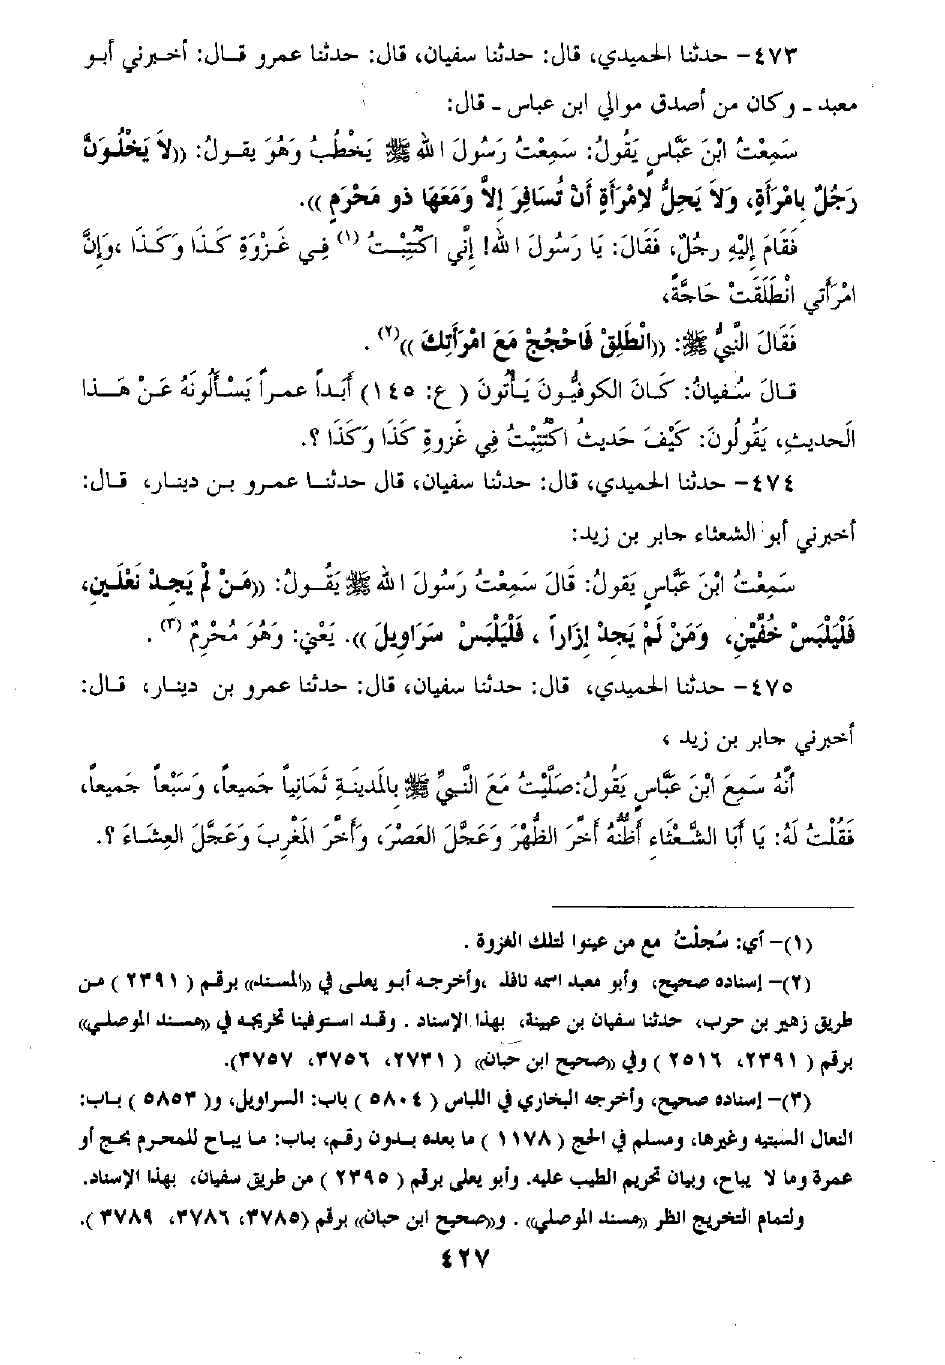 ٤٧٣- حدثنا الحميدي، قال: حدثنا سفيان، قال: حدثنا عمرو قال: أخبرني أبو
معبد - وكان من أصدق موالي ابن عباس - قال:
سَمِعْتُ ابْنَ عَبَّاسٍ يَقُولُ: سَمِعْتُ رَسُولَ اللهِ ﷺ يَخْطُبُ وَهُوَ يقولُ: ((لاَ يَخْلُوَنَّ
رَجُلٌ بِامْرَأَةٍ، وَلاَ يَحِلُّ لامْرَأَةٍ أَنْ تُسَافِرَ إلاَّ وَمَعَهَا ذو مَحْرَمٍ )).
فَقَامَ إلَيْهِ رجُلٌ، فَقَالَ: يَا رَسُولَ اللهِ! إنِّي اكْتُتِبْتُ (١) فِي غَزْوَةِ كَذَا وَكَذَا ،وَإنَّ
امْرَأَتي انْطَلَقَتْ حَاجَّةً،
فَقَالَ النَّبِيُّ ﷺ: ((انْطَلِقْ فَاحْجُجْ مَعَ امْرَأَتِكَ ))(٢) .
قالَ سُفيانُ: كَانَ الكوفيُّونَ يَأْتُونَ ( ع: ١٤٥) أَبَداً عمراً يَسْأَلُونَهُ عَنْ هَذا
الحديثِ، يَقُولُونَ: كَيْفَ حَديثُ اكْتُتِبْتُ فِي غَزوةِ كَذَا وَكَذَا ؟.
٤٧٤- حدثنا الحميدي، قال: حدثنا سفيان، قال حدثنا عمرو بن دينار، قال:
أخبرني أبو الشعثاء جابر بن زيد:
سَمِعْتُ ابْنَ عَبَّاسٍ يَقولُ: قَالَ سَمِعْتُ رَسُولَ اللهِ ﷺ يَقُولُ: ((مَنْ لَمْ يَجِدْ نَعْلَينِ،
فَلْيَلْبَسْ خُفَّيْنِ، وَمَنْ لَمْ يَجِدْ إزَاراً ، فَلْيَلْبَسْ سَرَاوِيلَ )). يَعْنِي: وَهُوَ مُحْرِمٌ (٣) .
٤٧٥- حدثنا الحميدي، قال: حدثنا سفيان، قال: حدثنا عمرو بن دينار، قال:
أخبرني جابر بن زيد ،
أَنَّهُ سَمِعَ ابْنَ عَبَّاسٍ يَقُولُ:صَلَّيْتُ مَعَ النَّبِيِّ ﷺ بِالمَدينَةِ ثَمَانِياً جَميعاً، وَسَبْعاً جَميعاً،
فَقُلْتُ لَهُ: يَا أَبَا الشَّعْثَاءِ أَظُنُّهُ أَخَّرَ الظُّهْرَ وَعَجَّلَ العَصْرَ، وَأَخَّرَ المَغْرِبَ وَعَجَّلَ العِشَاءَ ؟.
(١)- أي: سُجلْتُ مع من عينوا لتلك الغزوة .
(٢)- إسناده صحيح، وأبو معبد اسمه نافذ ،وأخرجه أبو يعلى في ((المسند)) برقم ( ٢٣٩١ ) من
طريق زهير بن حرب، حدثنا سفيان بن عيينة، بهذا الإسناد . وقد استوفينا تخريجه في ((مسند الموصلي))
برقم ( ٢٣٩١، ٢٥١٦ ) وفي ((صحيح ابن حبان)) ( ٢٧٣١، ٣٧٥٦، ٣٧٥٧).
(٣)- إسناده صحيح، وأخرجه البخاري في اللباس ( ٥٨٠٤ ) باب: السراويل، و( ٥٨٥٣ ) باب:
النعال السبتيه وغيرها، ومسلم في الحج ( ١١٧٨ ) ما بعده بدون رقم، باب: ما يباح للمحرم بحج أو
عمرة وما لا يباح، وبيان تحريم الطيب عليه. وأبو يعلى برقم ( ٢٣٩٥ ) من طريق سفيان، بهذا الإسناد.
ولتمام التخريج انظر ((مسند الموصلي)) . و((صحيح ابن حبان)) برقم (٣٧٨٥، ٣٧٨٦، ٣٧٨٩ ).
٤٢٧